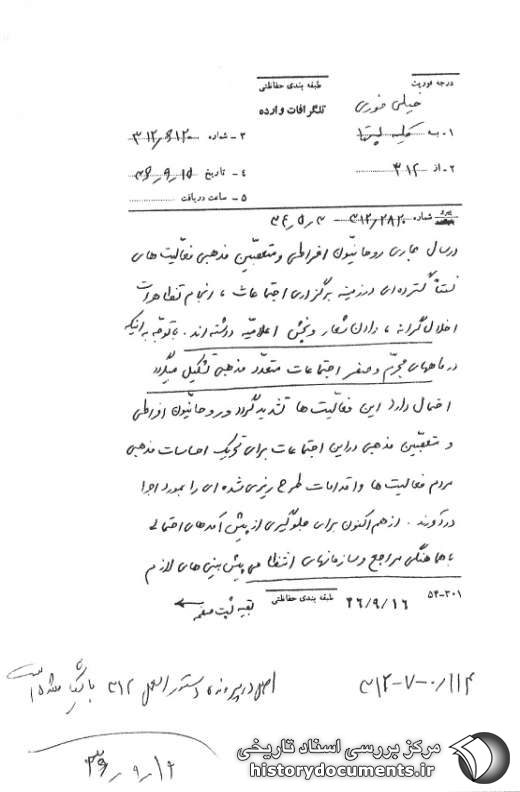 درجه فوریت
طبقه بندی حفاظتی
خیلی فوری
تلگرافات وارده
۱- به کلیه
۳- شماره
۲- از ۳۱۲
۴- تاریخ ۳۶,۹,۱۵
۵- ساعت دریافت
شماره ۳۱۲/۲۸۲۰
در سال جاری روحانیون افراطی و متعصبین مذهبی فعالیت های
نسبتاً گسترده ای در زمینه برگزاری اجتماعات ، انجام تظاهرات
اخلال گرانه ، دادن شعار و پخش اعلامیه داشته اند . با توجه به اینکه
در ماههای محرم و صفر اجتماعات متعدد مذهبی تشکیل میگردد
احتمال دارد این فعالیت ها تشدید گردد و روحانیون افراطی
و متعصبین مذهبی در این اجتماعات برای تحریک احساسات مذهبی
مردم فعالیت ها و اقدامات طرح ریزی شده ای را بمورد اجرا
درآورند . از هم اکنون برای جلوگیری از پیش آمدهای احتمالی
با هماهنگی مراجع و سازمانهای انتظامی پیش بینی های لازم
۵۴-۳۰۱
طبقه بندی حفاظتی
۳۶/۹/۱۶
بقیه پشت صفحه
۳۱۲-۷-۰/۱۱۴
اصل در پرونده دستورالعمل ۳۱۲ بایگانی شده است
۳۶,۹,۱۶
مرکز بررسی اسناد تاریخی
historydocuments.ir